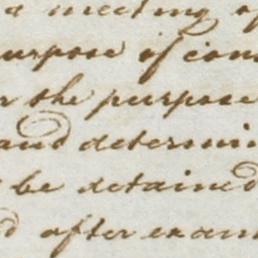 a meeting of
urpose of con
r the purpose
and determin
be detained
after exam